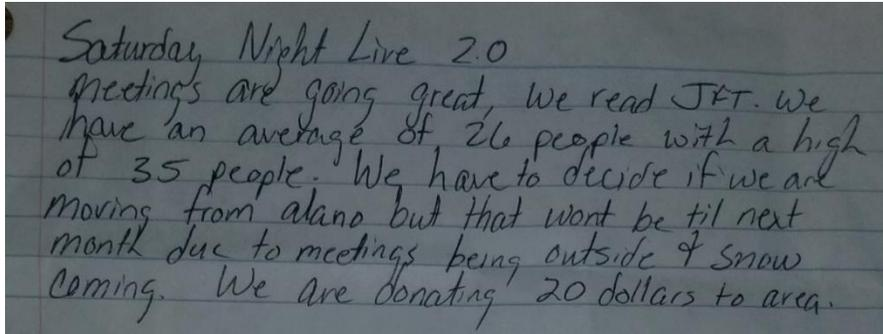 Saturday Night Live 2.0
meetings are going great, We read JFT. We
have an average of 26 people with a high
of 35 people. We have to decide if we are
moving from alano but that wont be til next
month due to meetings being outside & snow
Coming. We are donating 20 dollars to area.